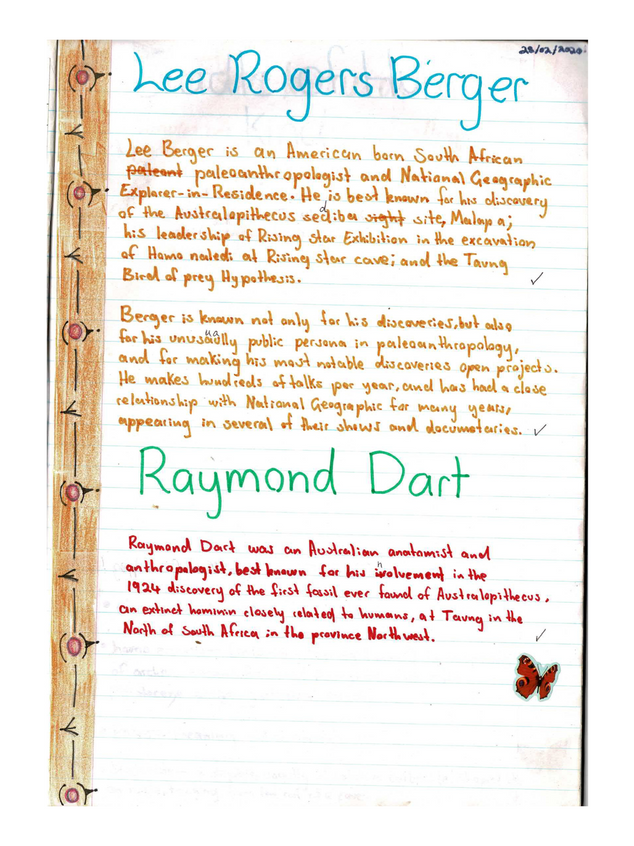 28/02/2020
Lee Rogers Berger
Lee Berger is an American born South African
paleoant paleoanthropologist and National Geographic
Explorer-in-Residence. He is best known for his discovery
of the Australopithecus sediba sight site, Malapa;
his leadership of Rising Star Exhibition in the excavation
of Homo naledi at Rising star cave; and the Taung
Bird of prey Hypothesis.
Berger is known not only for his discoveries, but also
for his unusually public persona in paleoanthropology,
and for making his most notable discoveries open projects.
He makes hundreds of talks per year, and has had a close
relationship with National Geographic for many years,
appearing in several of their shows and documetaries.
Raymond Dart
Raymond Dart was an Australian anatomist and
anthropologist, best known for his involvement in the
1924 discovery of the first fossil ever found of Australopithecus,
an extinct hominin closely related to humans, at Taung in the
North of South Africa in the province Northwest.